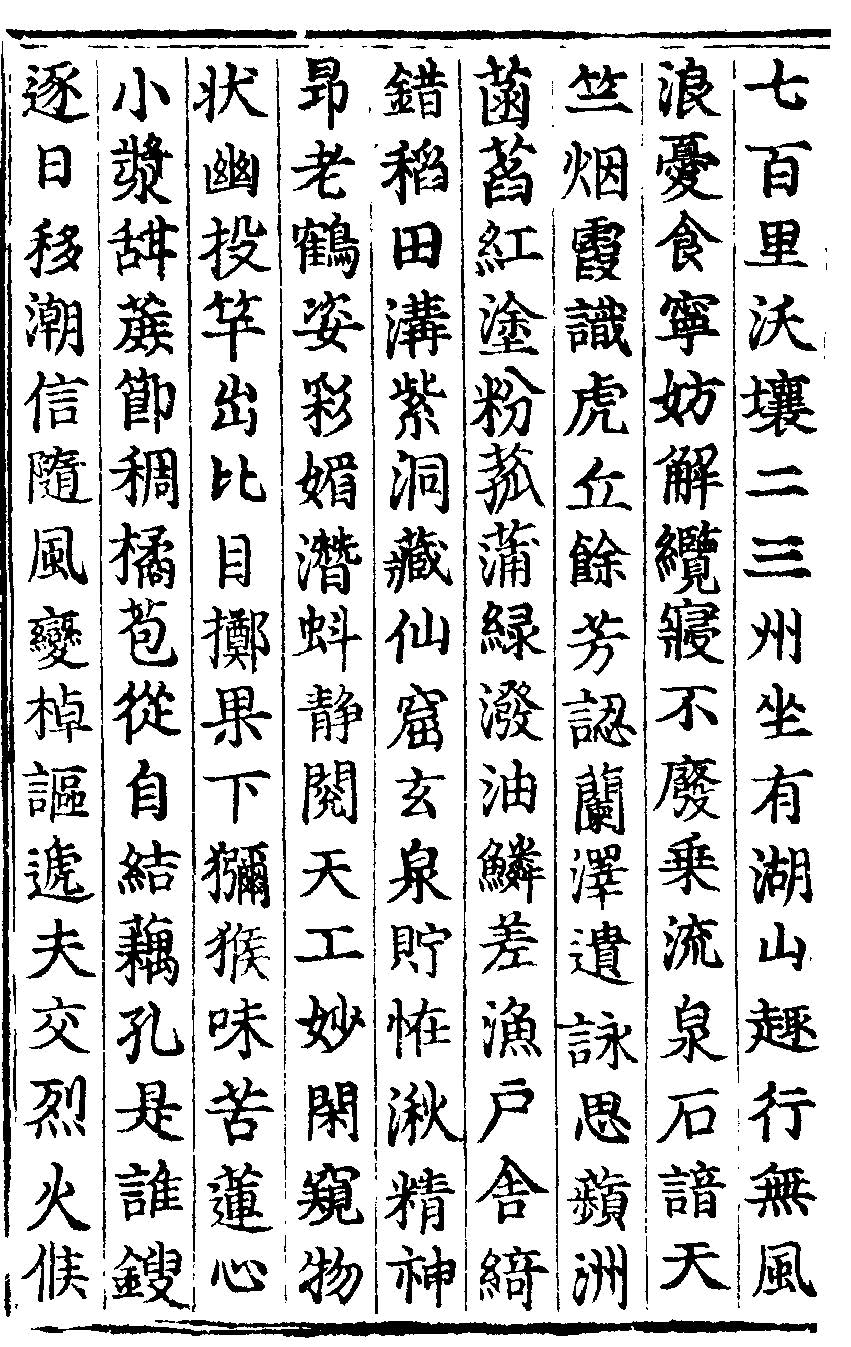 七百里沃壤二三州坐有湖山趣行無風
浪憂食寧妨解纜寢不廢乗流泉石諳天
竺烟霞識虎丘餘芳認蘭澤遺詠思蘋洲
菡萏紅塗粉菰蒲緑潑油鱗差漁戶舍綺
錯稻田溝紫洞藏仙窟玄泉貯恠湫精神
昂老鶴姿彩媚潛蚪静閱天工妙閑窺物
狀幽投竿出比目擲果下獼猴味苦蓮心
小漿甜蔗節稠橘苞從自結藕孔是誰鎪
逐日移潮信隨風變棹謳遞夫交烈火候